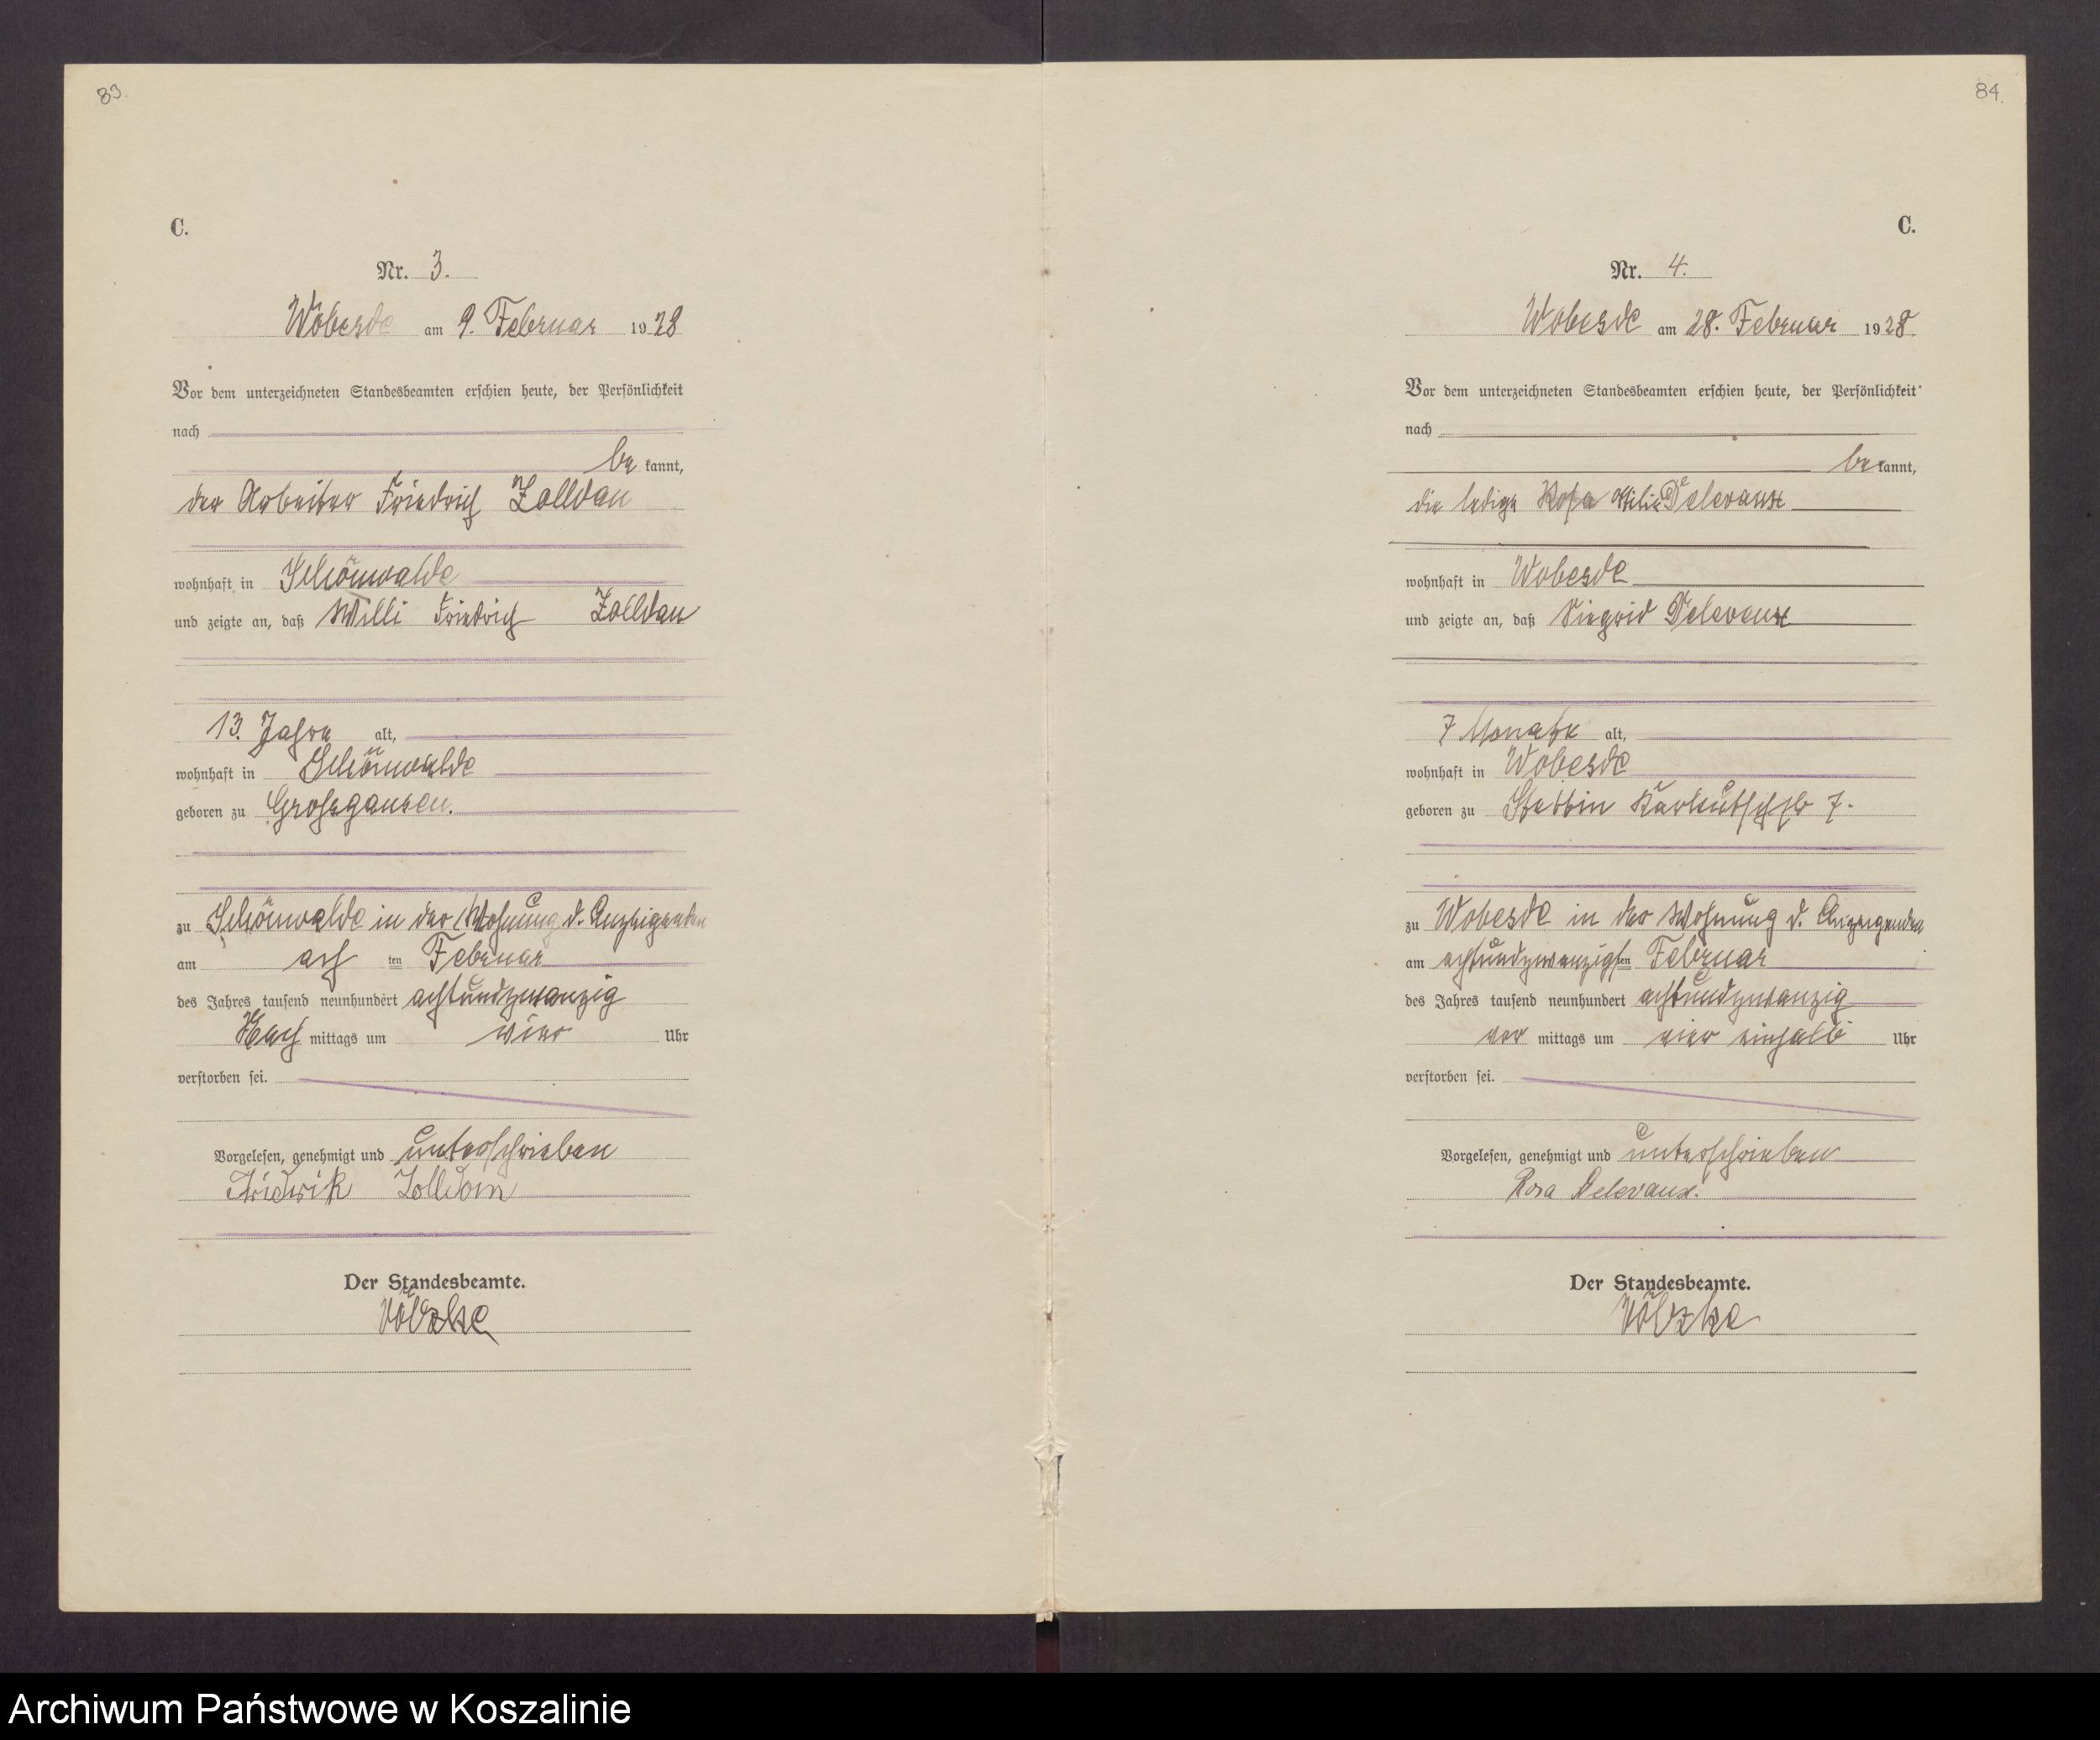 83.
C.
Nr. 3.
Wobesde am 9. Februar 1928
Vor dem unterzeichneten Standesbeamten erschien heute, der Persönlichkeit
nach
be kannt,
der Arbeiter Friedrich Zolldan
wohnhaft in Schönwalde
und zeigte an, daß Willi Friedrich Zolldan
13. Jahre alt,
wohnhaft in Schönwalde
geboren zu
zu Schönwalde in der Wohnung d. Anzeigenden
am ach ten Februar
des Jahres tausend neunhundert achtundzwanzig
Nach mittags um vier Uhr
verstorben sei.
Vorgelesen, genehmigt und unterschrieben
Der Standesbeamte.
Völzke
84.
C.
Nr. 4.
Wobesde am 28. Februar 1928
Vor dem unterzeichneten Standesbeamten erschien heute, der Persönlichkeit
nach
be kannt,
die ledige Rosa Delevaux
wohnhaft in Wobesde
und zeigte an, daß Siegrid Delevaux
7 Monate alt,
wohnhaft in Wobesde
geboren zu Stettin 7.
zu Wobesde in der Wohnung d. Anzeigenden
am achtundzwanzigsten Februar
des Jahres tausend neunhundert achtundzwanzig
vor mittags um vier einhalb Uhr
verstorben sei.
Vorgelesen, genehmigt und unterschrieben
Rosa Delevaux.
Der Standesbeamte.
Völzke
Archiwum Państwowe w Koszalinie